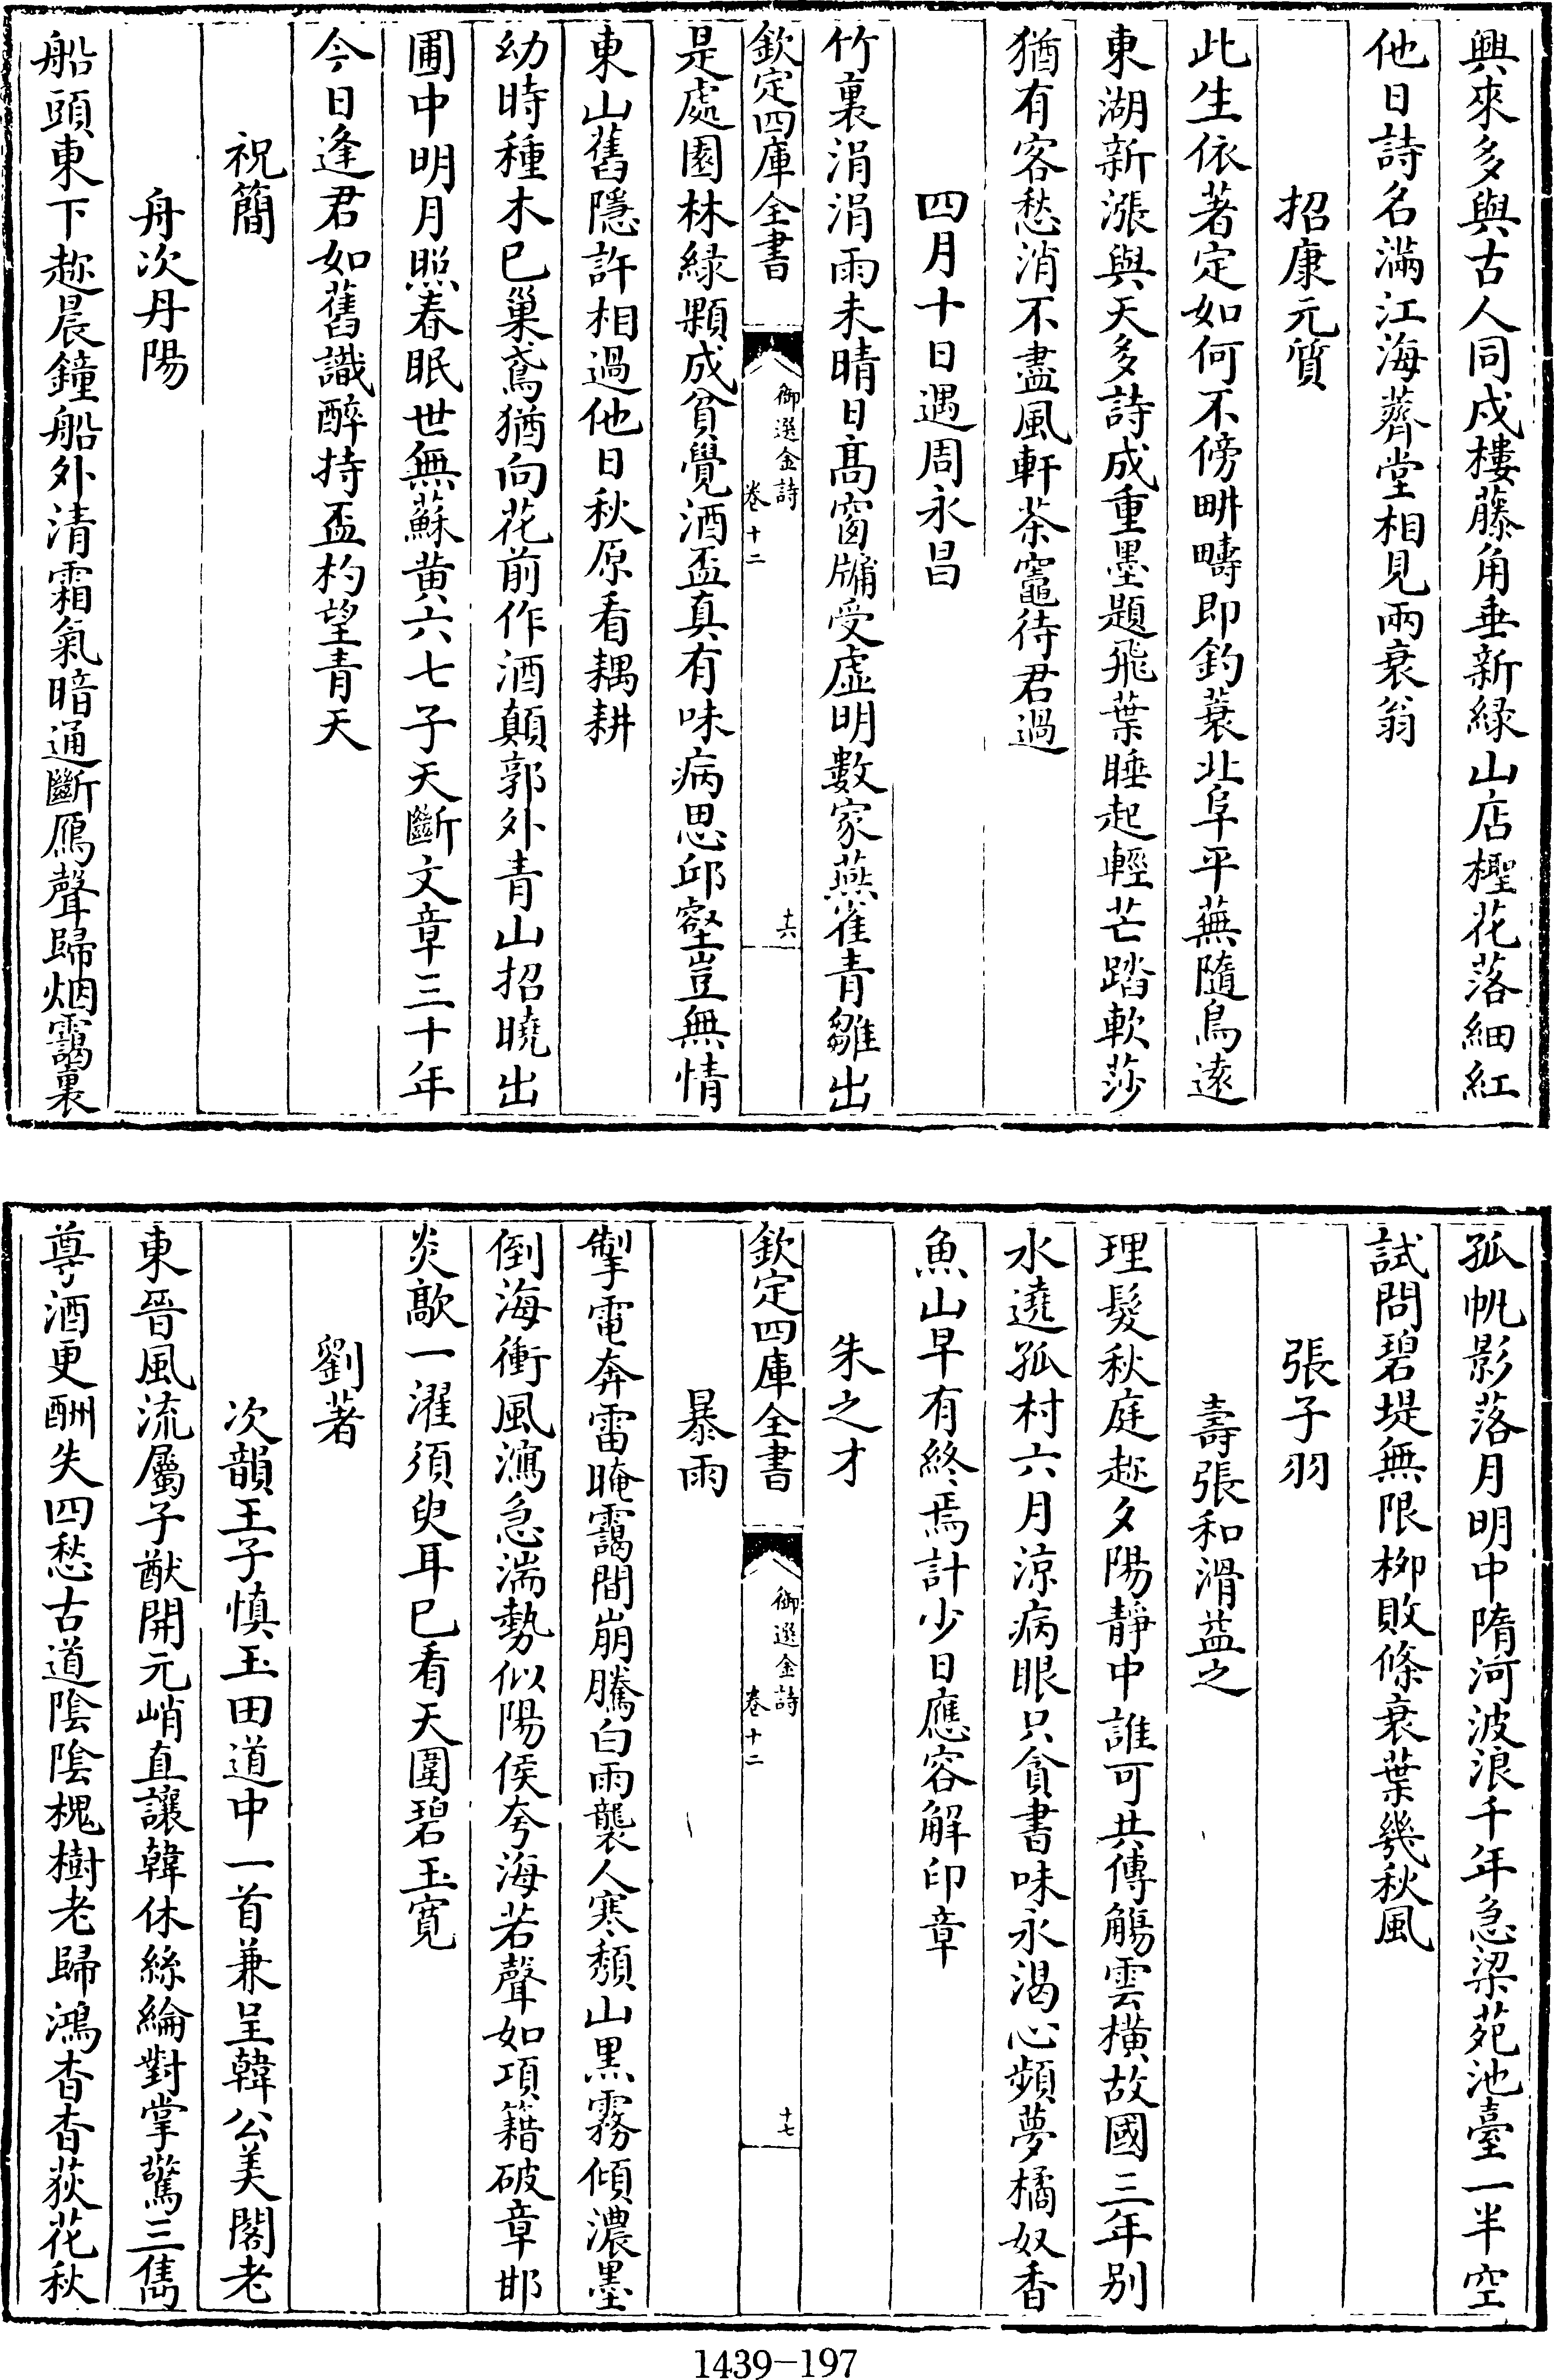 興來多與古人同戍樓藤角垂新緑山店檉花落細紅
他日詩名滿江海薺堂相見兩衰翁
招康元質
此生依著定如何不傍畊疇即釣蓑北阜平蕪隨鳥逺
東湖新漲與天多詩成重墨題飛葉睡起輕芒踏軟莎
猶有客愁消不盡風軒茶竈待君過
四月十日遇周永昌
竹裏涓涓雨未晴日髙窗牖受虛明數家燕雀青雛出
欽定四庫全書
御選金詩
卷十二
十六
是處園林緑顆成貧覺酒盃真有味病思邱壑豈無情
東山舊隱許相過他日秋原看耦耕
幼時種木已巢鳶猶向花前作酒顛郭外青山招曉出
圃中明月照春眠世無蘇黄六七子天斷文章三十年
今日逢君如舊識醉持盃杓望青天
祝簡
舟次丹陽
船頭東下趂晨鐘船外清霜氣暗通斷鴈聲歸烟靄裏
孤帆影落月明中隋河波浪千年急梁苑池臺一半空
試問碧堤無限柳敗條衰葉幾秋風
張子羽
壽張和滑益之
理髮秋庭趂夕陽靜中誰可共傳觴雲橫故國三年别
水遶孤村六月涼病眼只貪書味永渴心頻夢橘奴香
魚山早有終焉計少日應容解印章
朱之才
欽定四庫全書
御選金詩
卷十二
十七
暴雨
掣電奔雷晻靄間崩騰白雨襲人寒頽山黒霧傾濃墨
倒海衝風瀉急湍勢似陽侯夸海若聲如項籍破章邯
炎歊一濯須臾耳已看天圍碧玉寛
劉著
次韻王子慎玉田道中一首兼呈韓公美閣老
東晉風流屬子猷開元峭直讓韓休絲綸對掌驚三雋
尊酒更酬失四愁古道陰陰槐樹老歸鴻杳杳荻花秋
1439-197